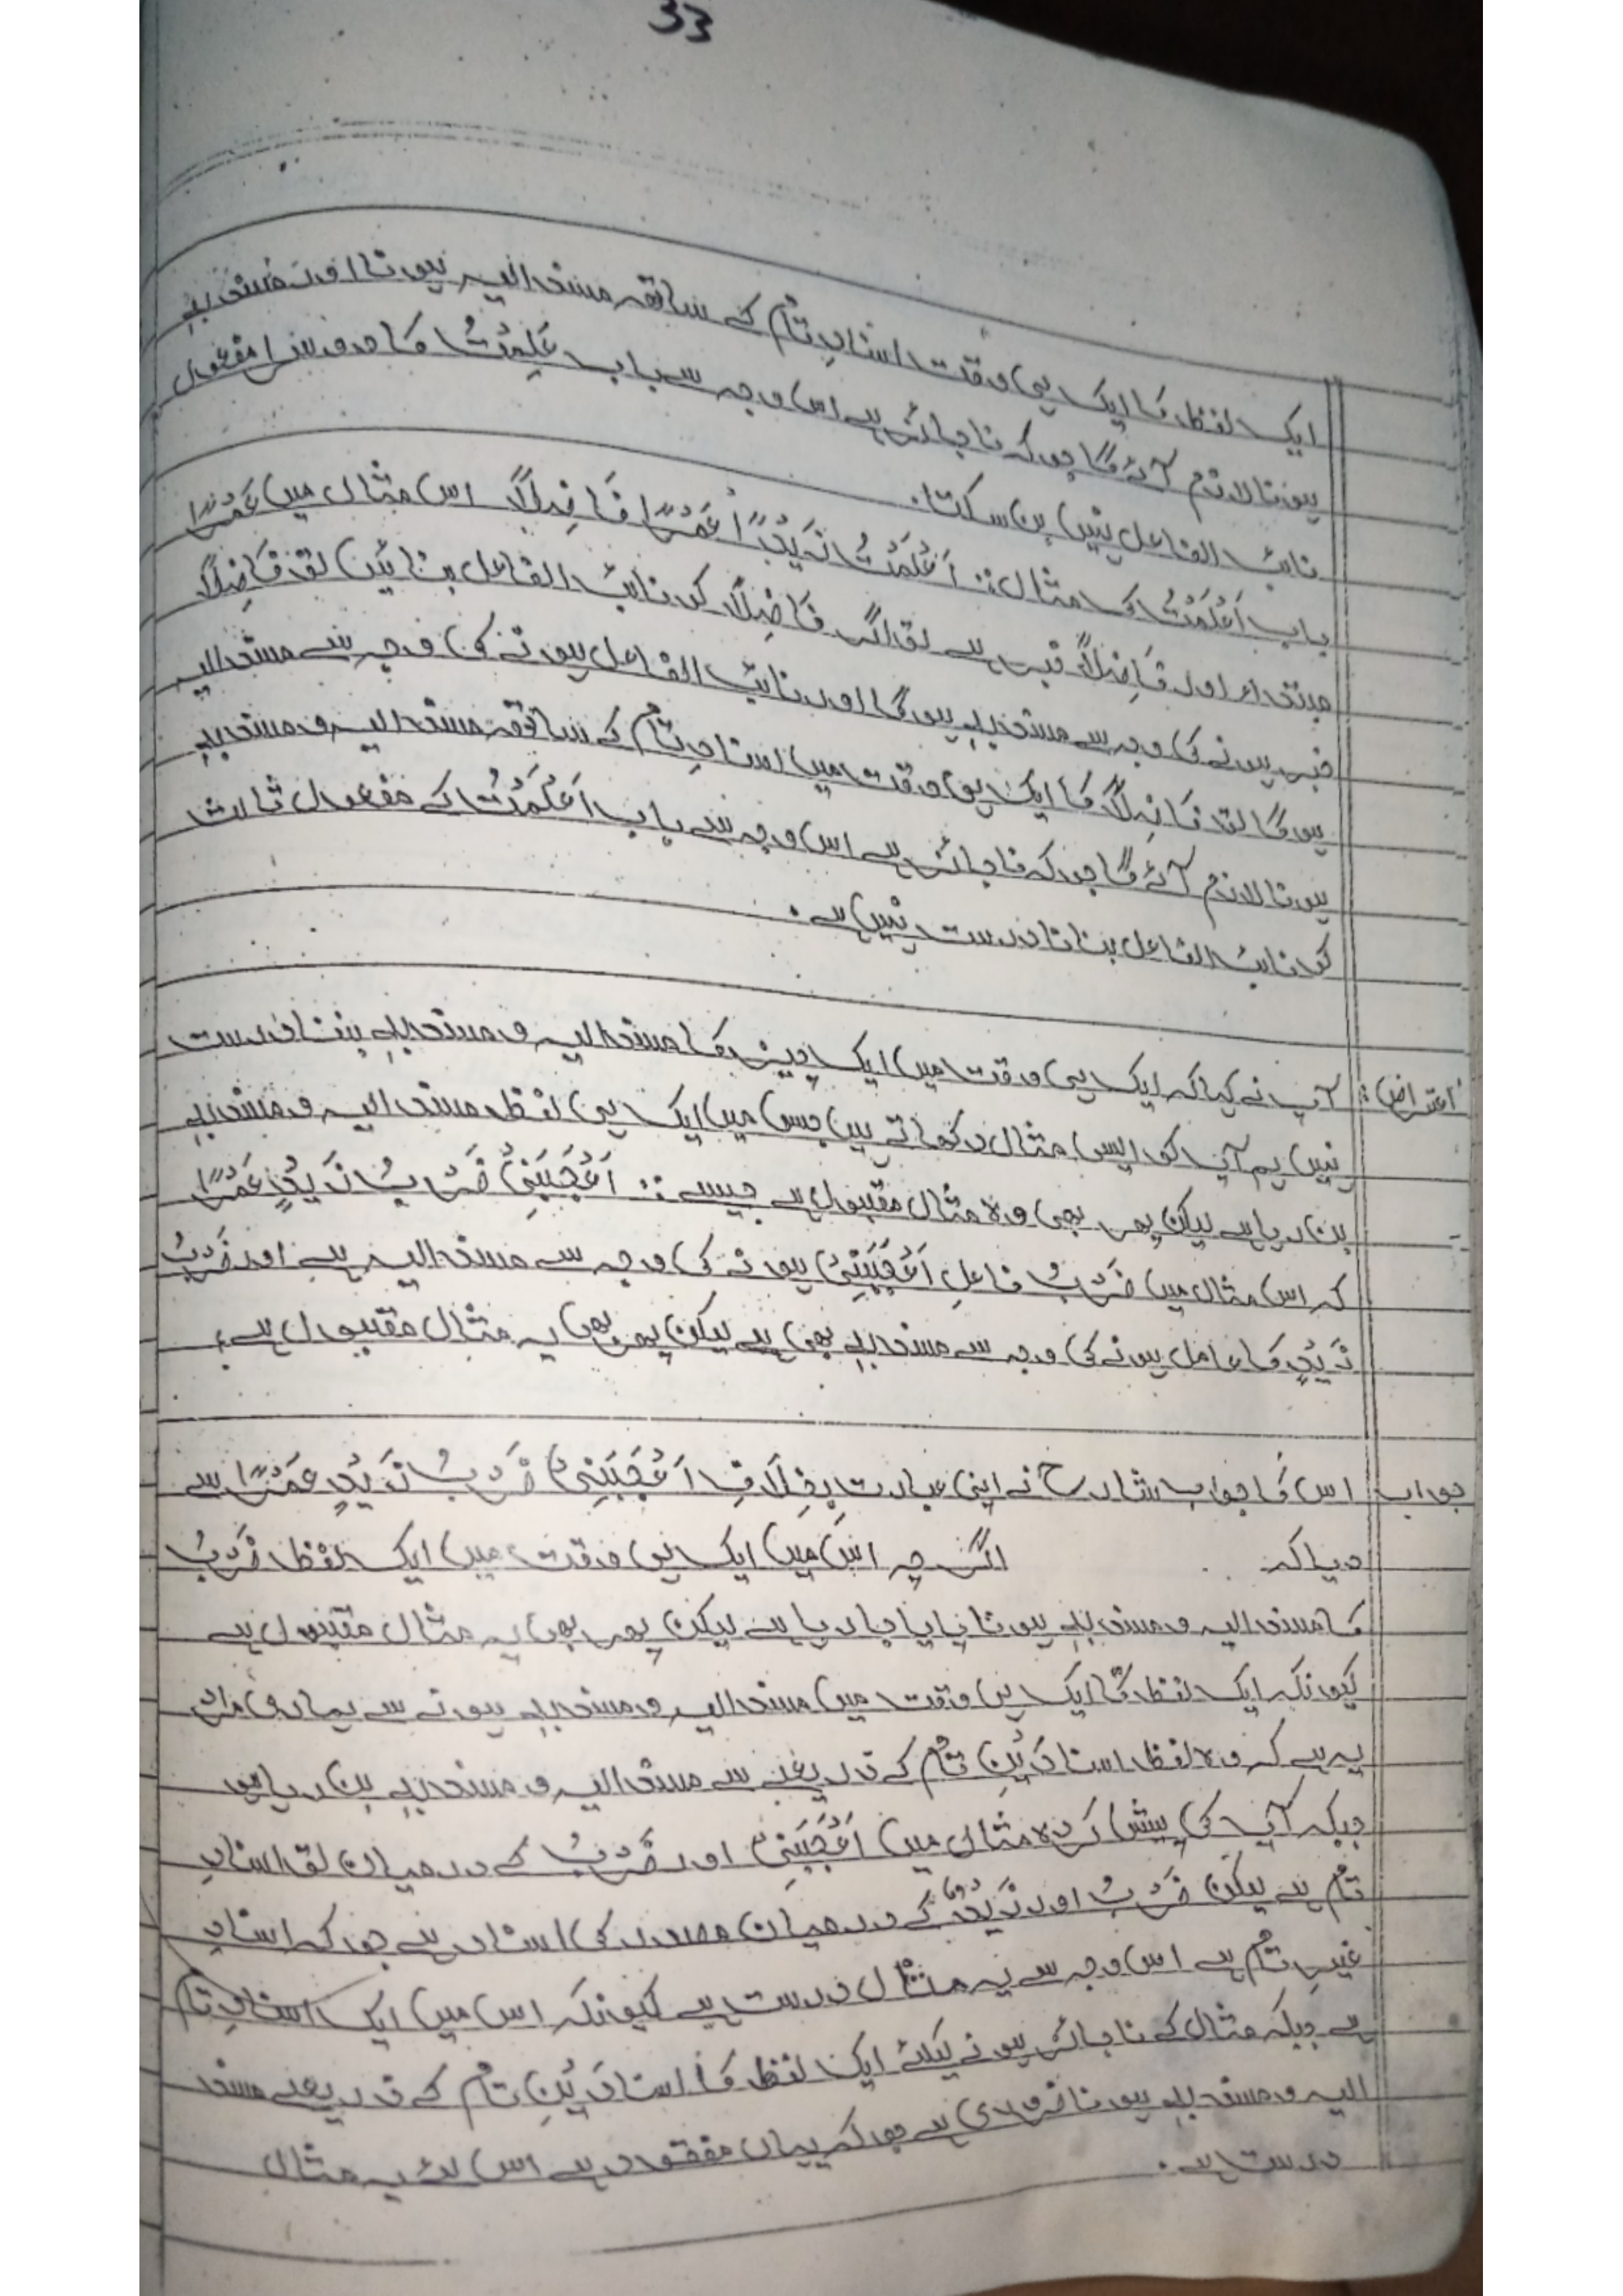 33
ایک لفظ کا ایک ہی وقت اسنادِ تام کے ساتھ مسند الیہ ہونا اور مسند بِہٖ
ہونا لازم آئے گا جو کہ ناجائز ہے اس وجہ سے باب عَلِمْتُ کا دوسرا مفعول
نائب الفاعل نہیں بن سکتا۔
باب اَعْلَمْتُ کی مثال:: اَعْلَمْتُ زَیْدًا عَمْرًا فَاضِلًا اس مثال میں عَمْرًا
مبتداء اور فَاضِلًا خبر ہے تو اگر فَاضِلًا کو نائب الفاعل بنائیں تو فَاضِلًا
خبر ہونے کی وجہ سے مسند بِہٖ ہوگا اور نائب الفاعل ہونے کی وجہ سے مسند الیہ
ہوگا تو فَاضِلًا کا ایک ہی وقت میں اسنادِ تام کے ساتھ مسند الیہ و مسند بِہٖ
ہونا لازم آئے گا جو کہ ناجائز ہے اس وجہ سے باب اَعْلَمْتُ کے مفعول ثالث
کو نائب الفاعل بنانا درست نہیں ہے۔
اعتراض: آپ نے کہا کہ ایک ہی وقت میں ایک چیز کا مسند الیہ و مسند بِہٖ بننا درست
نہیں ہم آپ کو ایسی مثال دکھاتے ہیں جس میں ایک ہی لفظ مسند الیہ و مسند بِہٖ
بن رہا ہے لیکن پھر بھی وہ مثال مقبول ہے جیسے:: اَعْجَبَنِیْ ضَرْبُ زَیْدٍ عَمْرًا
کہ اس مثال میں ضَرْبُ فاعلِ اَعْجَبَنِیْ ہونے کی وجہ سے مسند الیہ ہے اور ضَرْبُ
زَیْدٍ کا عامل ہونے کی وجہ سے مسند بِہٖ بھی ہے لیکن پھر بھی یہ مثال مقبول ہے؟
جواب اس کا جواب شارح نے اپنی عبارت بِخِلَافِ اَعْجَبَنِیْ ضَرْبُ زَیْدٍ عَمْرًا سے
دیا کہ اگرچہ اس میں ایک ہی وقت میں ایک لفظ ضَرْبُ
کا مسند الیہ و مسند بِہٖ ہونا پایا جا رہا ہے لیکن پھر بھی یہ مثال مقبول ہے
کیونکہ ایک لفظ کا ایک ہی وقت میں مسند الیہ و مسند بِہٖ ہونے سے ہماری مراد
یہ ہے کہ وہ لفظ اسنادَیْنِ تام کے ذریعے سے مسند الیہ و مسند بِہٖ بن رہا ہو
جبکہ آپ کی پیش کردہ مثال میں اَعْجَبَنِیْ اور ضَرْبُ کے درمیان تو اسنادِ
تام ہے لیکن ضَرْبُ اور زَیْدٍ کے درمیان مصدر کی اسناد ہے جو کہ اسنادِ
غیرِ تام ہے اس وجہ سے یہ مثال درست ہے کیونکہ اس میں ایک اسنادِ تام
ہے جبکہ مثال کے ناجائز ہونے کیلئے ایک لفظ کا اسنادَیْنِ تام کے ذریعے مسند
الیہ و مسند بِہٖ ہونا ضروری ہے جو کہ یہاں مفقود ہے اس لئے یہ مثال
درست ہے۔